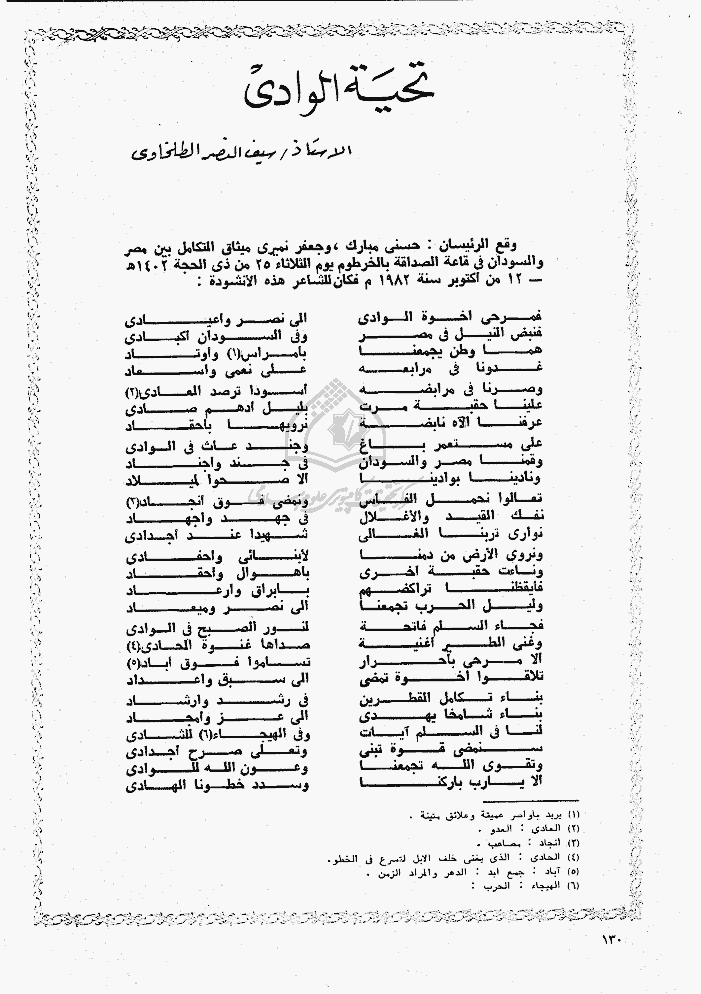 تحية الوادى
الاستاذ / سيف النصر الطلخاوى
وقع الرئيسان : حسنى مبارك ، وجعفر نميرى ميثاق التكامل بين مصر
والسودان فى قاعة الصداقة بالخرطوم يوم الثلاثاء ٢٥ من ذى الحجة ١٤٠٢هـ
— ١٢ من أكتوبر سنة ١٩٨٢ م فكان للشاعر هذه الأنشودة :
فمرحى اخوة الوادى الى نصر واعيادى
فنبض النيل فى مصر وفى السودان اكبادى
هما وطن يجمعنا بأمراس(١) واوتاد
غدونا فى مرابعه على نعمى واسعاد
وصرنا فى مرابضه أسودا ترصد العادى(٢)
علينا حقبة مرت بليل أدهم صادى
عرفنا الآه نابضة نرويها بأحقاد
على مستعمر باغ وجند عاث فى الوادى
وقمنا مصر والسودان فى جند واجناد
ونادينا بوادينا ألا صحوا لميلاد
تعالوا نحمل الفأس ونمضى فوق انجاد(٣)
نفك القيد والأغلال فى جهد واجهاد
نوارى تربنا الغالى شهيدا عند أجدادى
ونروى الأرض من دمنا لأبنائى وأحفادى
وناءت حقبة أخرى بأهوال وأحقاد
فأيقظنا تراكضهم بابراق وارعاد
وليل الحرب تجمعنا الى نصر وميعاد
فجاء السلم فاتحة لنور الصبح فى الوادى
وغنى الطير أغنية صداها غنوة الحادى(٤)
ألا مرحى بأحرار تساموا فوق آباد(٥)
تلاقوا أخوة تمضى الى سبق واعداد
بناء تكامل القطرين فى رشد وارشاد
بناء شامخا يهدى الى عز وأمجاد
لنا فى السلم آيات وفى الهيجاء(٦) للشادى
سنمضى قوة تبنى وتعلى صرح أجدادى
وتقوى الله تجمعنا وعون الله للوادى
ألا يارب باركنا وسدد خطونا الهادى
(١) يريد بأواصر عميقة وعلائق متينة .
(٢) العادى : العدو .
(٣) أنجاد : مصاعب .
(٤) الحادى : الذى يغنى خلف الابل لتسرع فى الخطو.
(٥) آباد : جمع أبد : الدهر والمراد الزمن .
(٦) الهيجاء : الحرب :
١٣٠